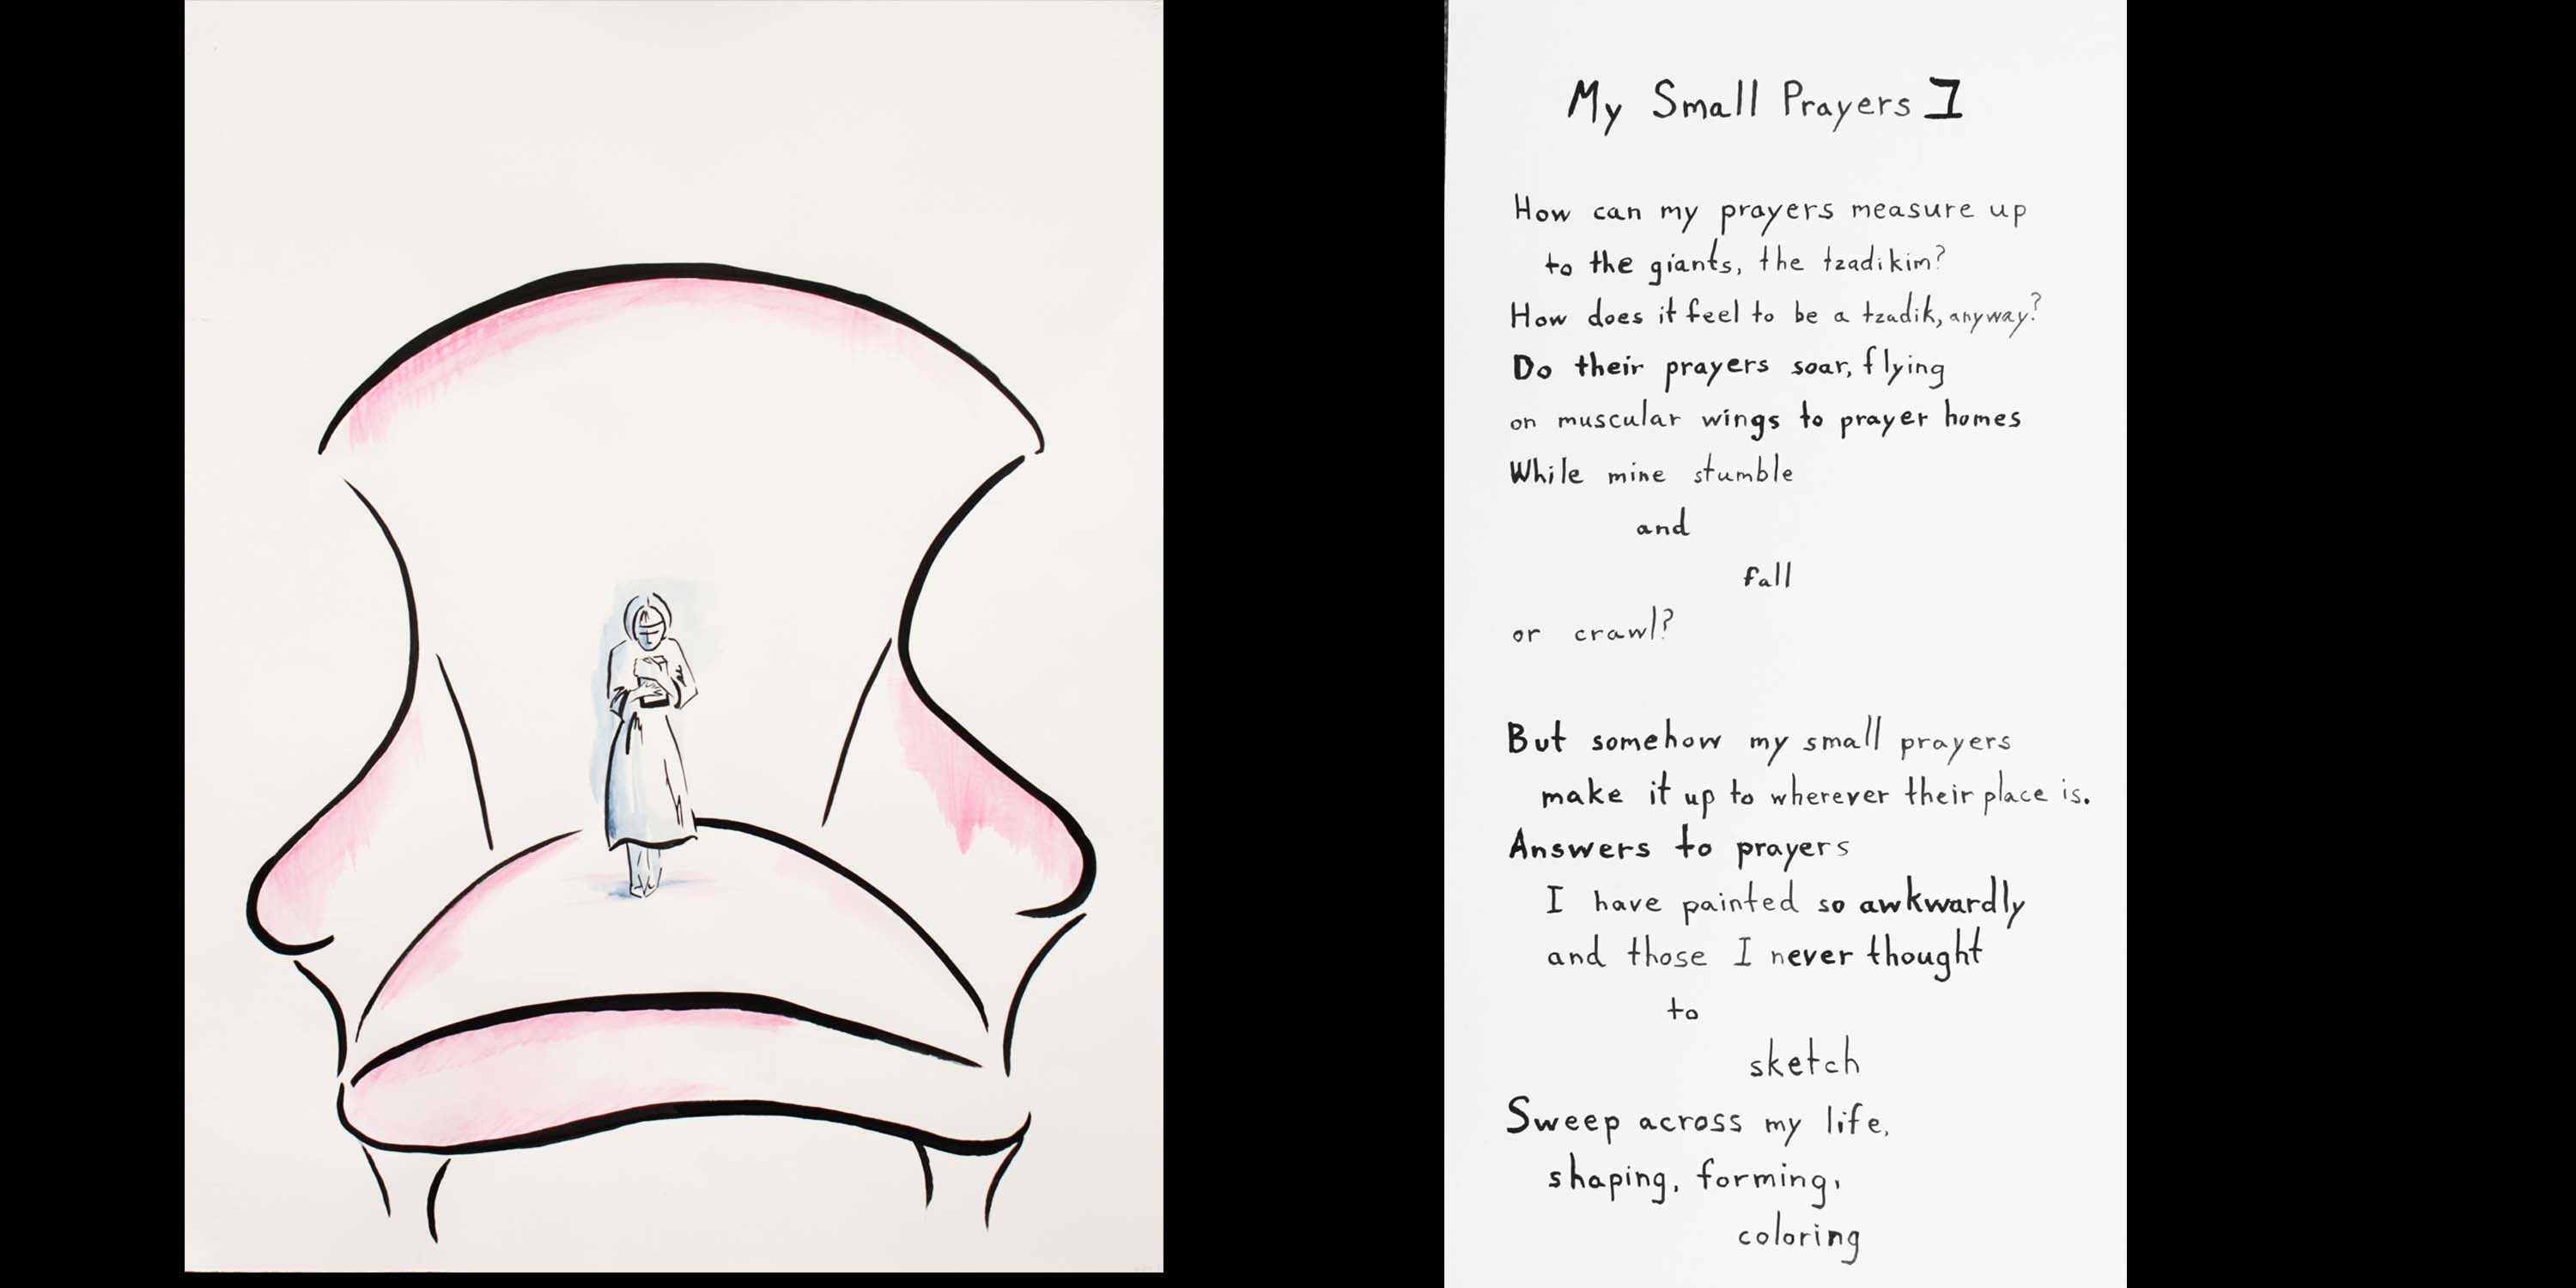 My Small Prayers I
How can my prayers measure up
to the giants, the tzadikim?
How does it feel to be a tzadik, anyway?
Do their prayers soar, flying
on muscular wings to prayer homes
While mine stumble
and
fall
or crawl?
But somehow my small prayers
make it up to wherever their place is.
Answers to prayers
I have painted so awkwardly
and those I never thought
to
sketch
Sweep across my life,
shaping, forming,
coloring